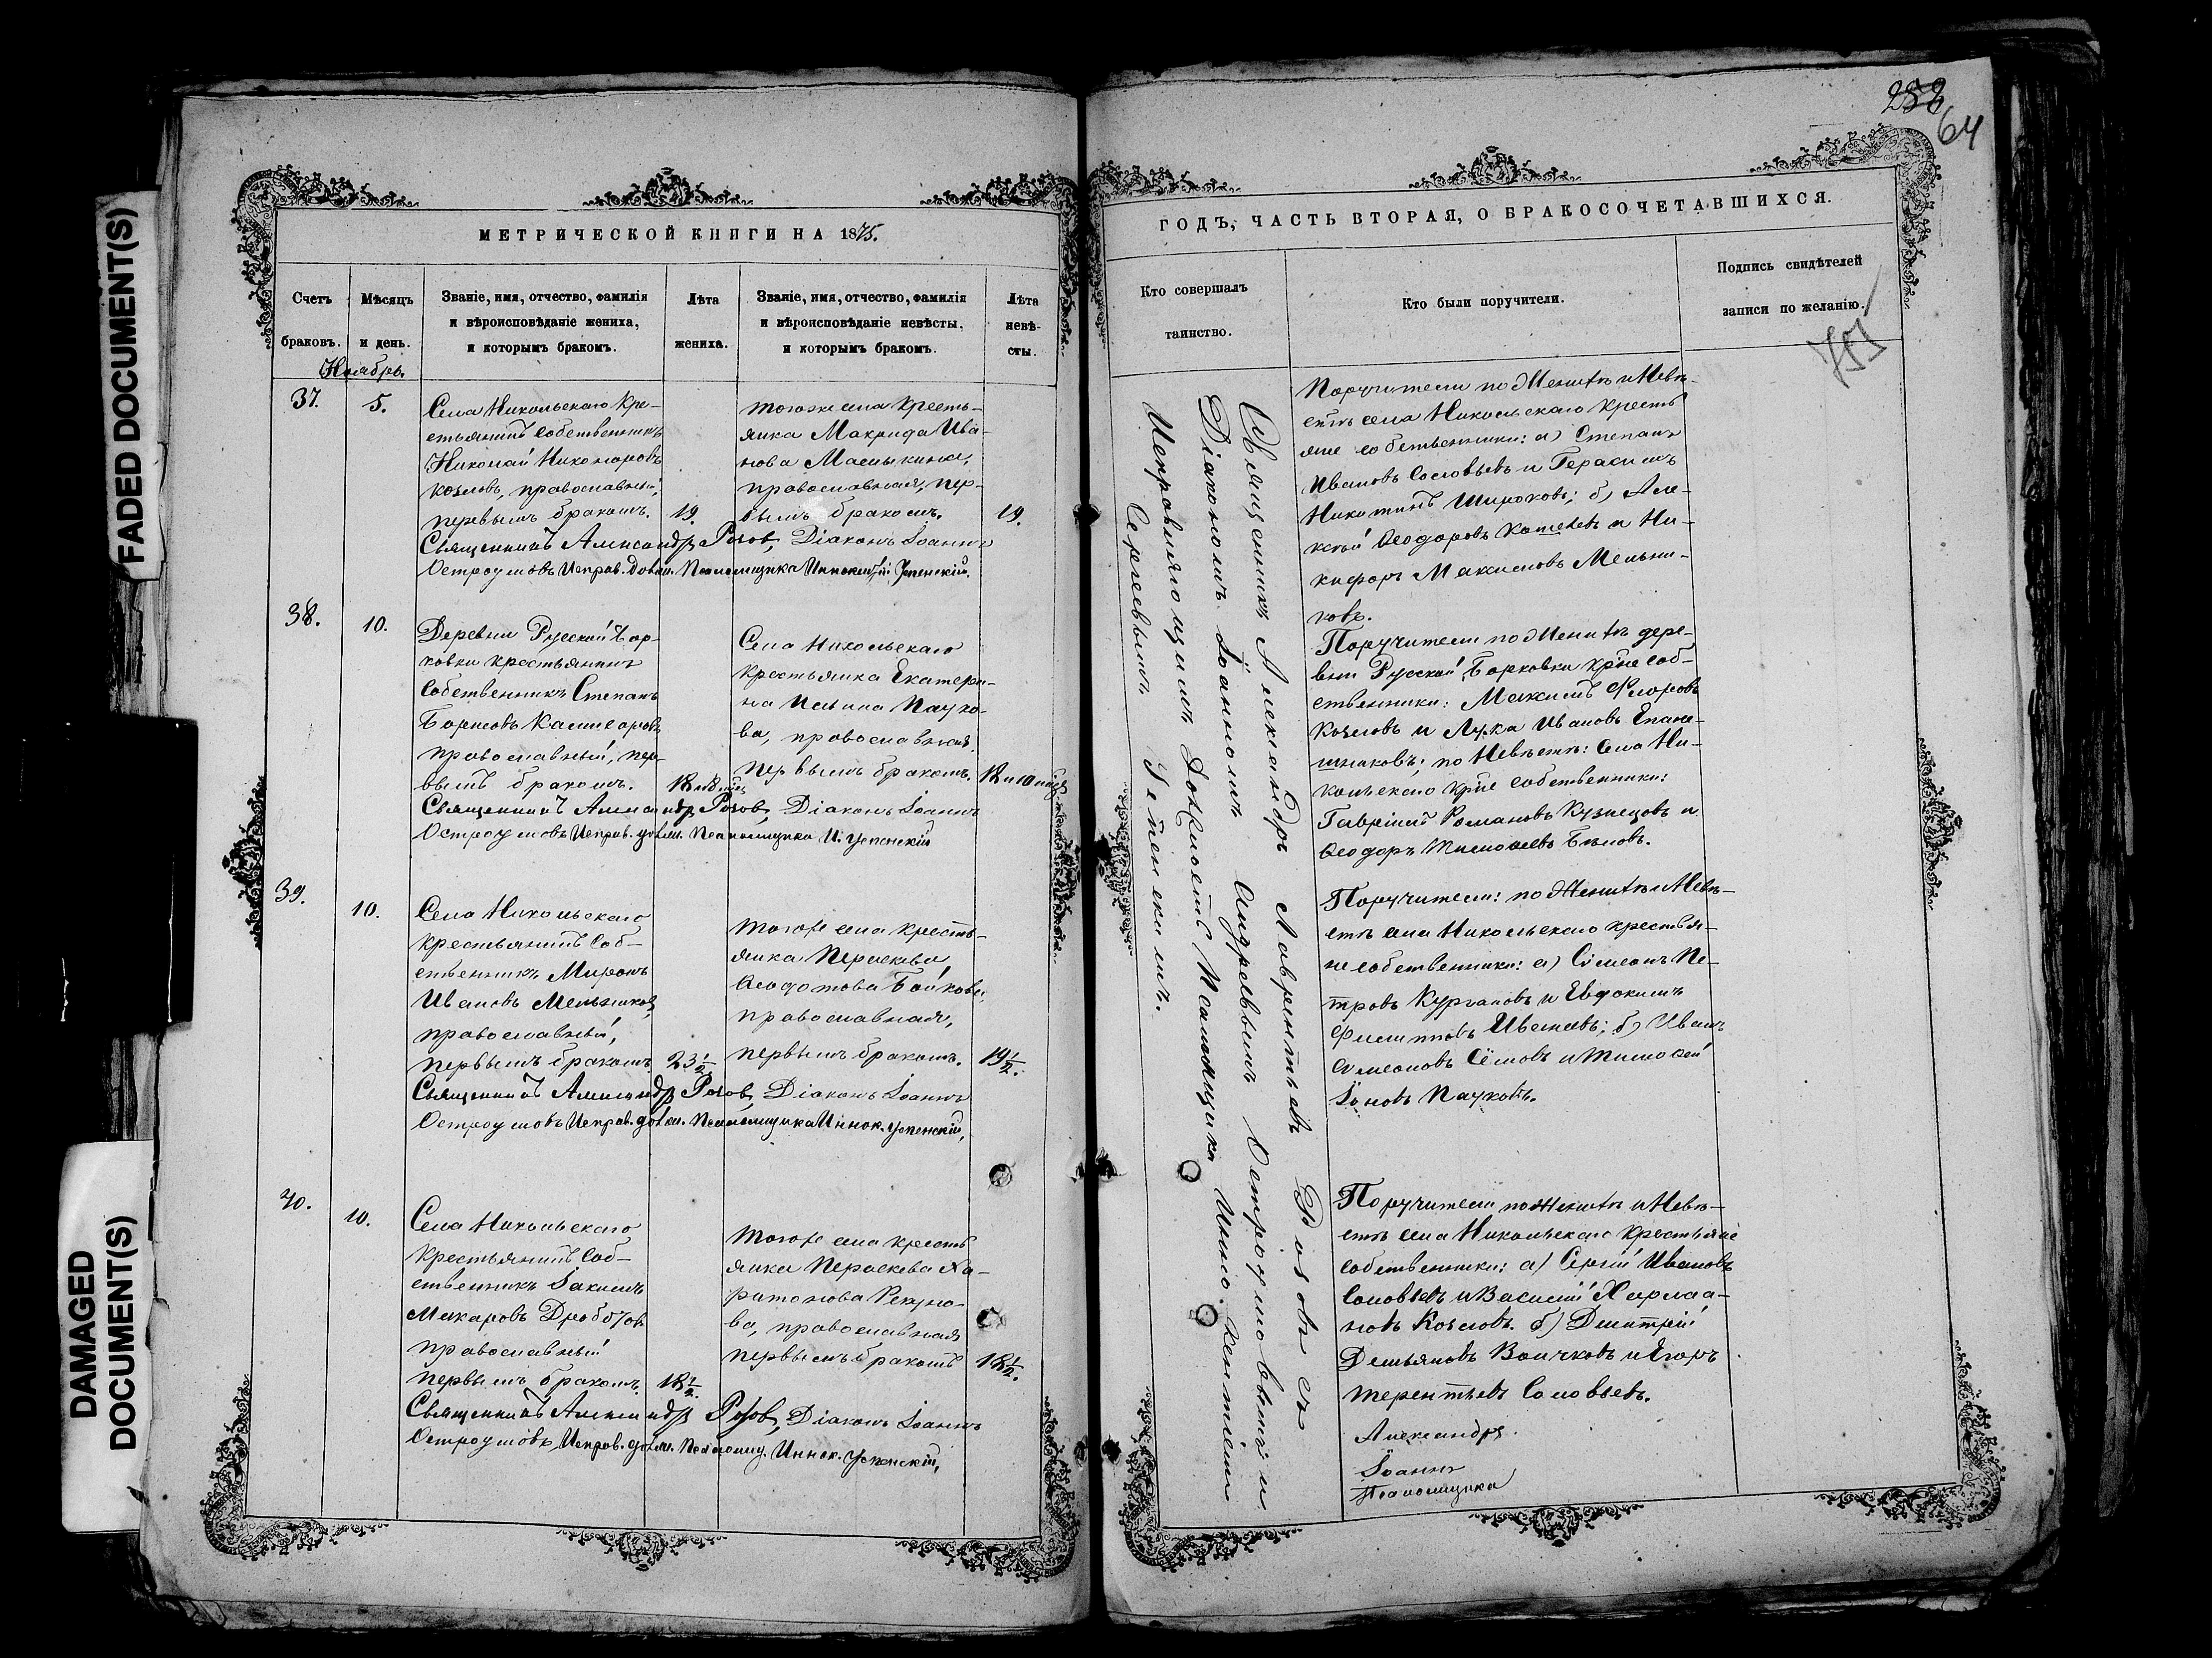 FADED DOCUMENT(S)
DAMAGED
DOCUMENT(S)
МЕТРИЧЕСКОЙ КНИГИ НА 1875.
Счетъ
браковъ.
Мѣсяцъ
и день.
Званіе, имя, отчество, фамилія
и вѣроисповѣданіе жениха,
и которымъ бракомъ.
Лѣта
жениха.
Званіе, имя, отчество, фамилія
и вѣроисповѣданіе невѣсты,
и которымъ бракомъ.
Лѣта
невѣ-
сты.
Ноябрь.
37.
5.
Села Никольскаго Кре-
стьянинъ собственникъ
Николай Никоноровъ
Козловъ, православный,
первымъ бракомъ.
19.
Тогоже села кресть-
янка Макрида Ива-
нова
православная, пер-
вымъ бракомъ.
19.
Священникъ Александръ Розов, Діаконъ Іоаннъ
Остроумовъ Исправ. долж. Псаломщика Иннокентій Успенскій.
38.
10.
Деревни Русской Бор-
ковки крестьянинъ
Собственникъ Степанъ
Борисовъ
православный, пер-
вымъ бракомъ.
Села Никольскаго
Крестьянка Екатери-
на Ильина Пауко-
ва, православная,
первымъ бракомъ.
Священникъ Александръ Розов, Діаконъ Іоаннъ
Остроумовъ Исправ. долж. Псаломщика И. Успенскій
39.
10.
Села Никольскаго
крестьянинъ Соб-
ственникъ Миронъ
Ивановъ Мельниковъ,
православный,
первымъ бракомъ.
23 1/2
Тогоже села кресть-
янка Параскева
Ѳеодотова Байкова,
православная,
первымъ бракомъ.
19 1/2.
Священникъ Александръ Розов, Діаконъ Іоаннъ
Остроумовъ Исправ. долж. Псаломщика Иннок. Успенскій,
40.
10.
Села Никольскаго
Крестьянинъ Соб-
ственникъ Іакимъ
Макаровъ
православный
первымъ бракомъ.
18 1/2.
Тогоже села кресть
янка Параскева Ха-
ритонова
православная
первымъ бракомъ
18 1/2.
Священникъ Александръ Розов, Діаконъ Іоаннъ
Остроумовъ, Исправ. долж. Псаломщ. Иннок. Успенскій,
252
64
ГОДЪ, ЧАСТЬ ВТОРАЯ, О БРАКОСОЧЕТАВШИХСЯ.
Кто совершалъ
таинство.
Кто были поручители.
Подпись свидѣтелей
записи по желанію.
Священникъ Александръ Лаврентьевъ Розовъ съ
Діакономъ Іоанномъ Андреевымъ Остроумовымъ и
Исправляющимъ Должность Псаломщика Иннокентіемъ
Сергеевымъ Успенскимъ.
Поручители по Женихѣ и Невѣ-
стѣ села Никольскаго Кресть
яне собственники: а) Степанъ
Ивановъ Соловьевъ и Герасимъ
Никитинъ Широковъ; б) Але-
ксѣй Ѳеодоровъ Кошелевъ и Ни-
кифоръ Максимовъ Мельни-
ковъ.
Поручители по Женихѣ дере-
вни Русской Борковки кр-не соб-
ственники: Максимъ Флоровъ
Козловъ и Лука Ивановъ Епане-
шниковъ; по Невѣстѣ: Села Ни-
кольскаго кр-не собственники:
Гавріилъ Романовъ Кузнецовъ и
Ѳеодоръ Тимоѳеевъ Бѣловъ.
Поручители: по Женихѣ и Невѣ-
стѣ села Никольскаго крестья-
не собственники: а) Симеонъ Пе-
тровъ Кургановъ и Евдокимъ
Филипповъ б) Иванъ
Симеоновъ Сёмовъ и Тимоѳей
Іоновъ Пауковъ.
Поручители по Женихѣ и Невѣ-
стѣ села Никольскаго Крестьяне
собственники: а) Сергѣй Ивановъ
Соловьевъ и Василій Харлаа-
новъ Козловъ. б) Дмитрій
Демьяновъ Волчковъ и Егоръ
Терентьевъ Соловьевъ.
Александръ
Іоаннъ
Псаломщика